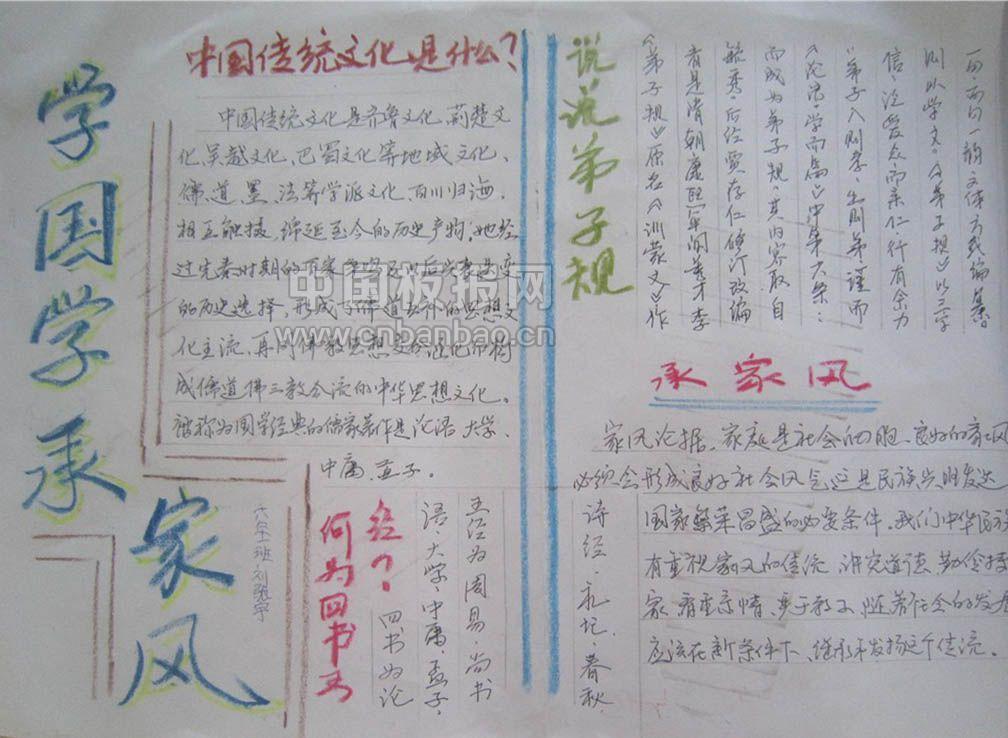 学国学承
家风
六年二班
中国传统文化是什么？
中国传统文化是齐鲁文化、荊楚文
化、吴越文化、巴蜀文化等地域文化、
儒、道、墨、法等学派文化、百川归海，
相互融摄，绵延至今的历史产物，她经
过先秦时期的百家争鸣
的历史选择，形成了儒道互补的思想文
化主流，再同佛教思想
成儒道佛三教合流的中华思想文化。
被称为国学经典的儒家著作是论语、大学、
中庸、孟子。
何为四书五
经？
四书为论
语、大学、中庸、孟子，
五经为周易、尚书
诗经、礼记、春秋
说说弟子规
《弟子规》原名《训蒙文》作
者是清朝康熙年间秀才李
毓秀，后经贾存仁修订改编
而成为弟子规，其内容取自
《论语·学而篇》中第六条：
“弟子入则孝，出则弟，谨而
信，泛爱众，而亲仁，行有余力
则以学文。《弟子规》以三字
一句，两句一韵文体方式编纂
承家风
家风论据，家庭是社会的细胞、良好的家风
必须会形成良好社会风气这是民族兴旺发达
国家繁荣昌盛的必要条件，我们中华
有重视家风的传统，讲究道德，勤俭持
家，看重亲情，
应该在新条件下，继承和发扬这个传统。
中国板报网
www.cnbanbao.cn